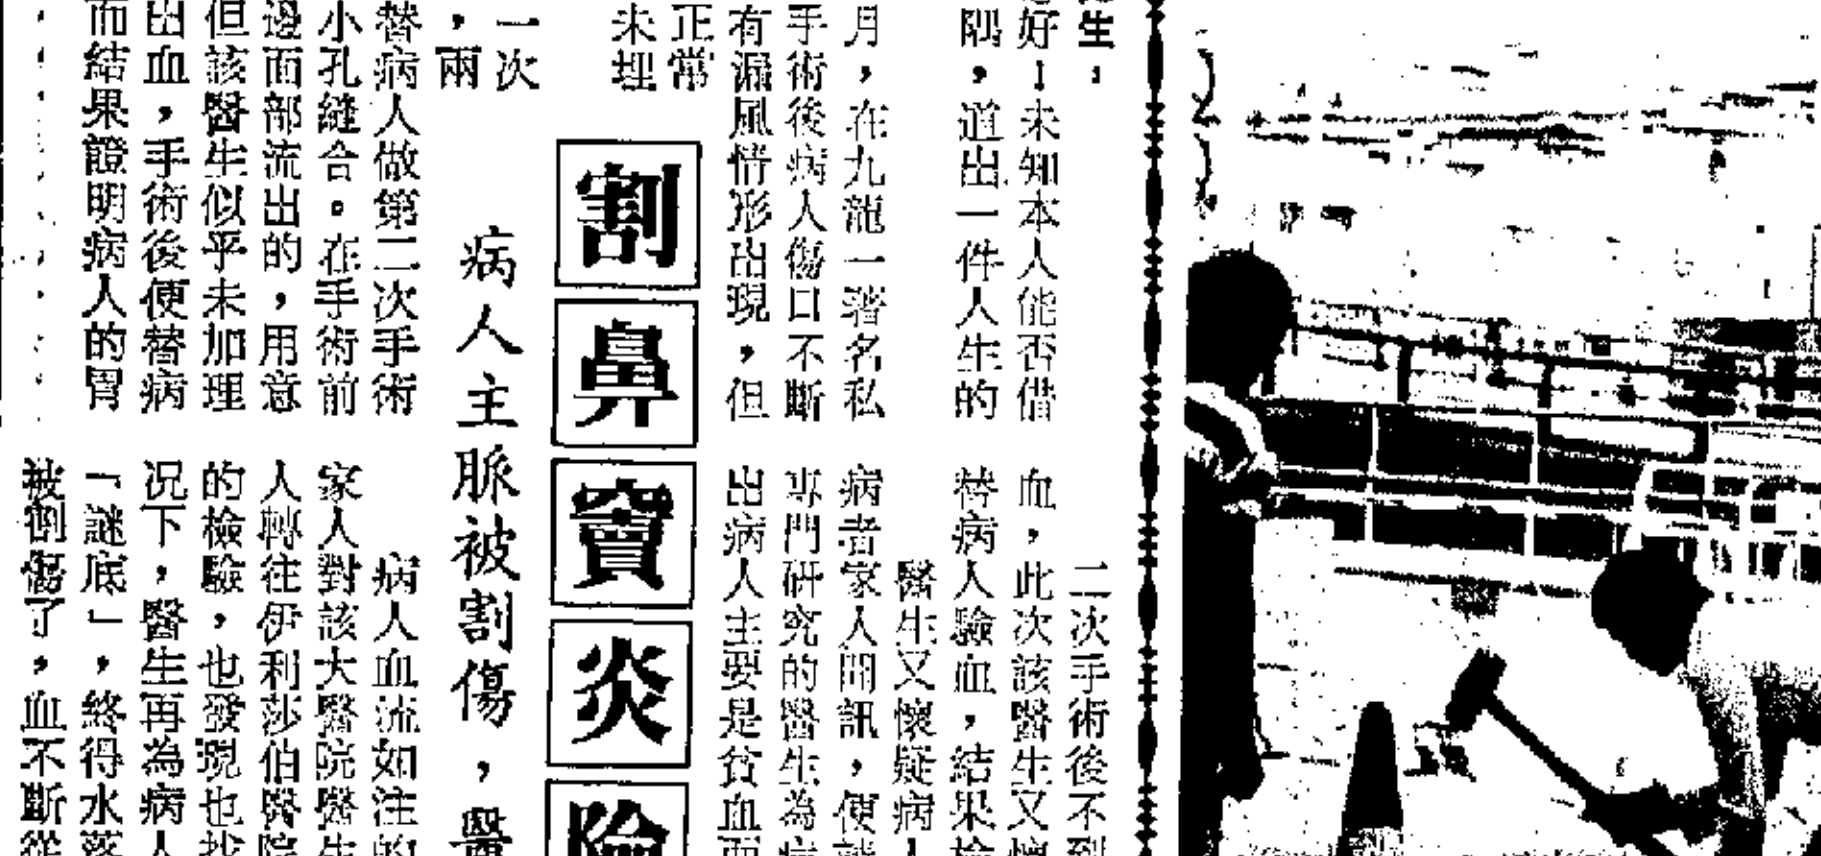 生：
好！未知本人能否借
隅，道出一件人生的
月，在九龍一著名私
手術後病人傷口不斷
有漏風情形出現，但
正常
未埋
二次手術後不到
血，此次該醫生又懷
替病人驗血，結果檢
醫生又懷疑病人
病者家人聞訊，便
專門研究的醫生為病
出病人主要是貧血而
割鼻竇炎險
病人主脈被割傷，醫
一次
，兩
替病人做第二次手術
小孔縫合。在手術前
邊面部流出的，用意
但該醫生似乎未加理
出血，手術後便替病
而結果證明病人的胃
病人血流如注的
家人對該大醫院醫生
人轉往伊利莎伯醫院
的檢驗，也發現也找
况下，醫生再為病人
「謎底」，終得水落
被割傷了，血不斷從